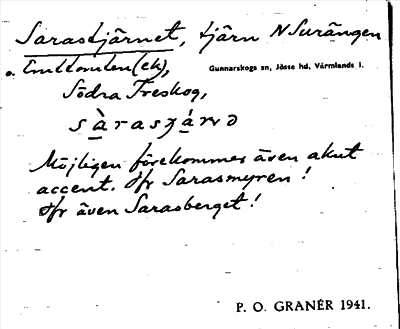 Sarastjärnet, tjärn N Surängen
o. Emtkomten (ek),
Gunnarskogs sn, Jösse hd, Värmlands l.
Södra Treskog,
Möjligen förekommer även akut
accent. Jfr Sarasmyren!
Jfr även Sarasberget!
P. O. GRANÉR 1941.